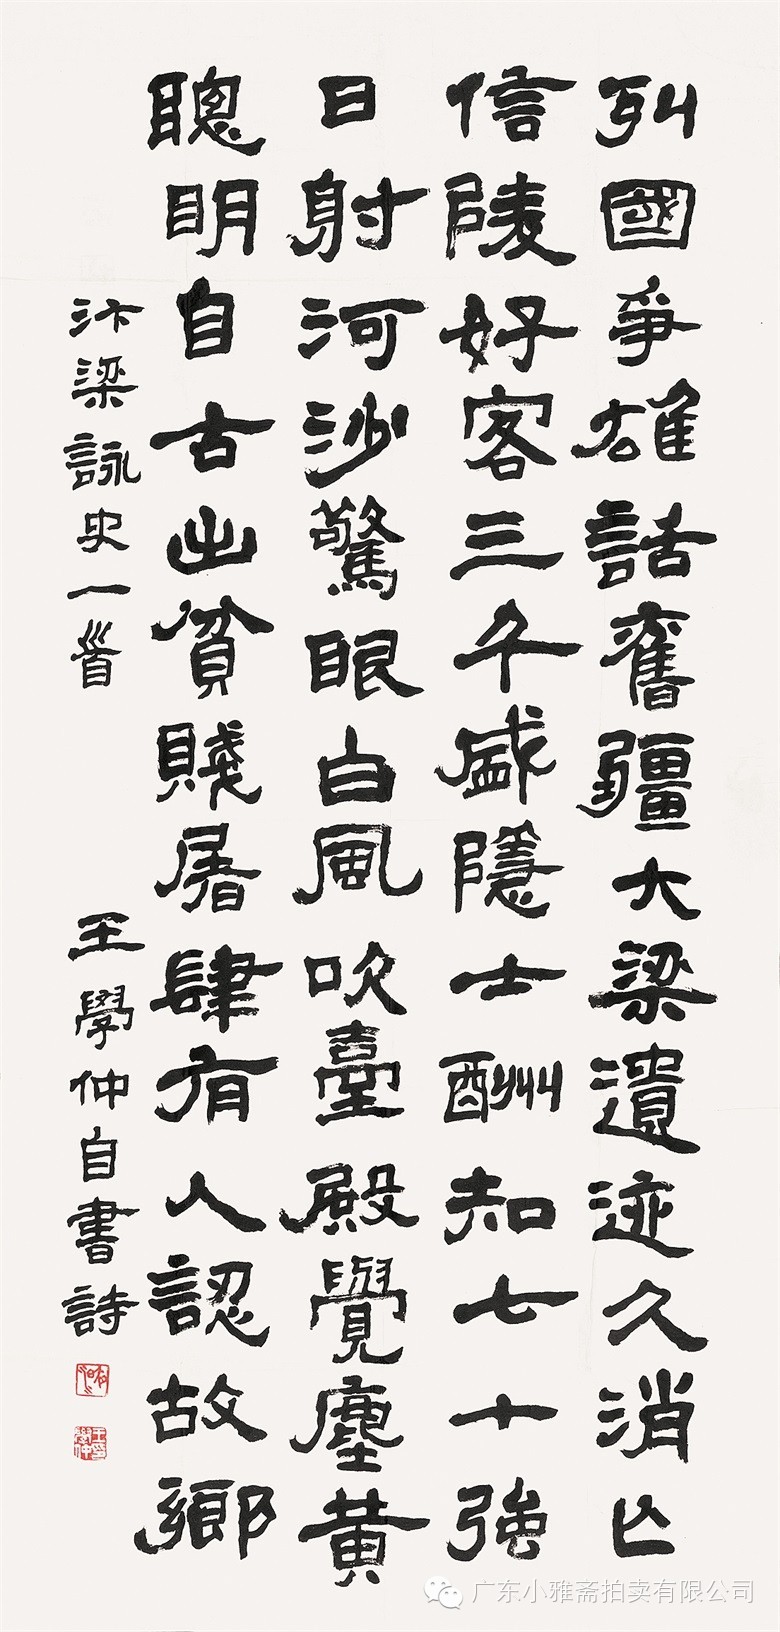 列國爭雄話舊疆大梁遺迹久消亡
信陵好客三千盛隱士酬知七十強
日射河沙驚眼白風吹臺殿覺塵黃
聰明自古出貧賤屠肆有人認故鄉
汴梁詠史一首
王學仲自書詩
王學仲
广东小雅斋拍卖有限公司